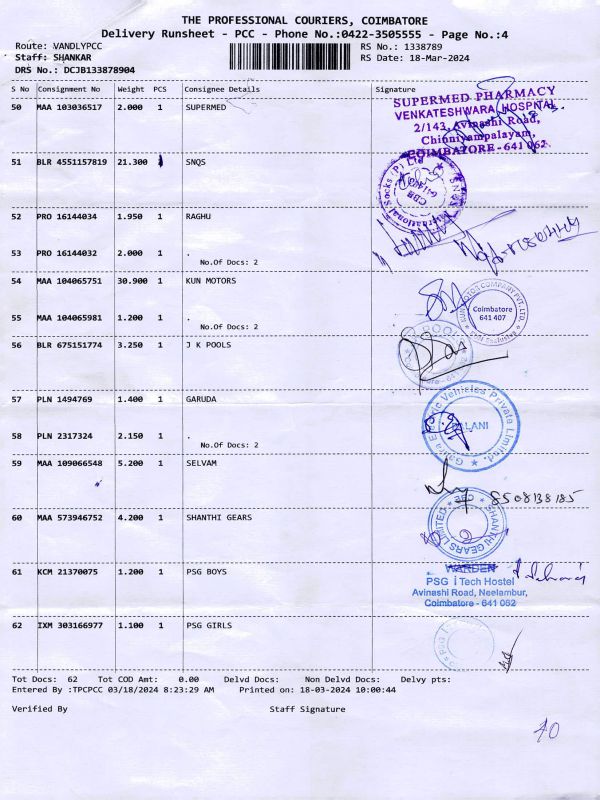 THE PROFESSIONAL COURIERS, COIMBATORE
Delivery Runsheet - PCC - Phone No.:0422-3505555 - Page No.:4
Route: VANDLYPCC RS No.: 1338789
Staff: SHANKAR RS Date: 18-Mar-2024
DRS No.: DCJB133878904
S No Consignment No Weight PCS Consignee Details Signature
50 MAA 103036517 2.000 1 SUPERMED
SUPERMED PHARMACY
VENKATESHWARA HOSPITAL
2/143, Avinashi Road,
Chinniyampalayam,
COIMBATORE - 641 062
51 BLR 4551157819 21.300 SNQS
52 PRO 16144034 1.950 1 RAGHU
53 PRO 16144032 2.000 1 .
No.Of Docs: 2
54 MAA 104065751 30.900 1 KUN MOTORS
Coimbatore
641 407
55 MAA 104065981 1.200 1 .
No.Of Docs: 2
56 BLR 675151774 3.250 1 J K POOLS
57 PLN 1494769 1.400 1 GARUDA
58 PLN 2317324 2.150 1 .
No.Of Docs: 2
59 MAA 109066548 5.200 1 SELVAM
8508138185
60 MAA 573946752 4.200 1 SHANTHI GEARS
SHANTHI GEARS LIMITED
61 KCM 21370075 1.200 1 PSG BOYS
WARDEN
PSG iTech Hostel
Avinashi Road, Neelambur,
Coimbatore - 641 062
62 IXM 303166977 1.100 1 PSG GIRLS
Tot Docs: 62 Tot COD Amt: 0.00 Delvd Docs: Non Delvd Docs: Delvy pts:
Entered By :TPCPCC 03/18/2024 8:23:29 AM Printed on: 18-03-2024 10:00:44
Verified By Staff Signature